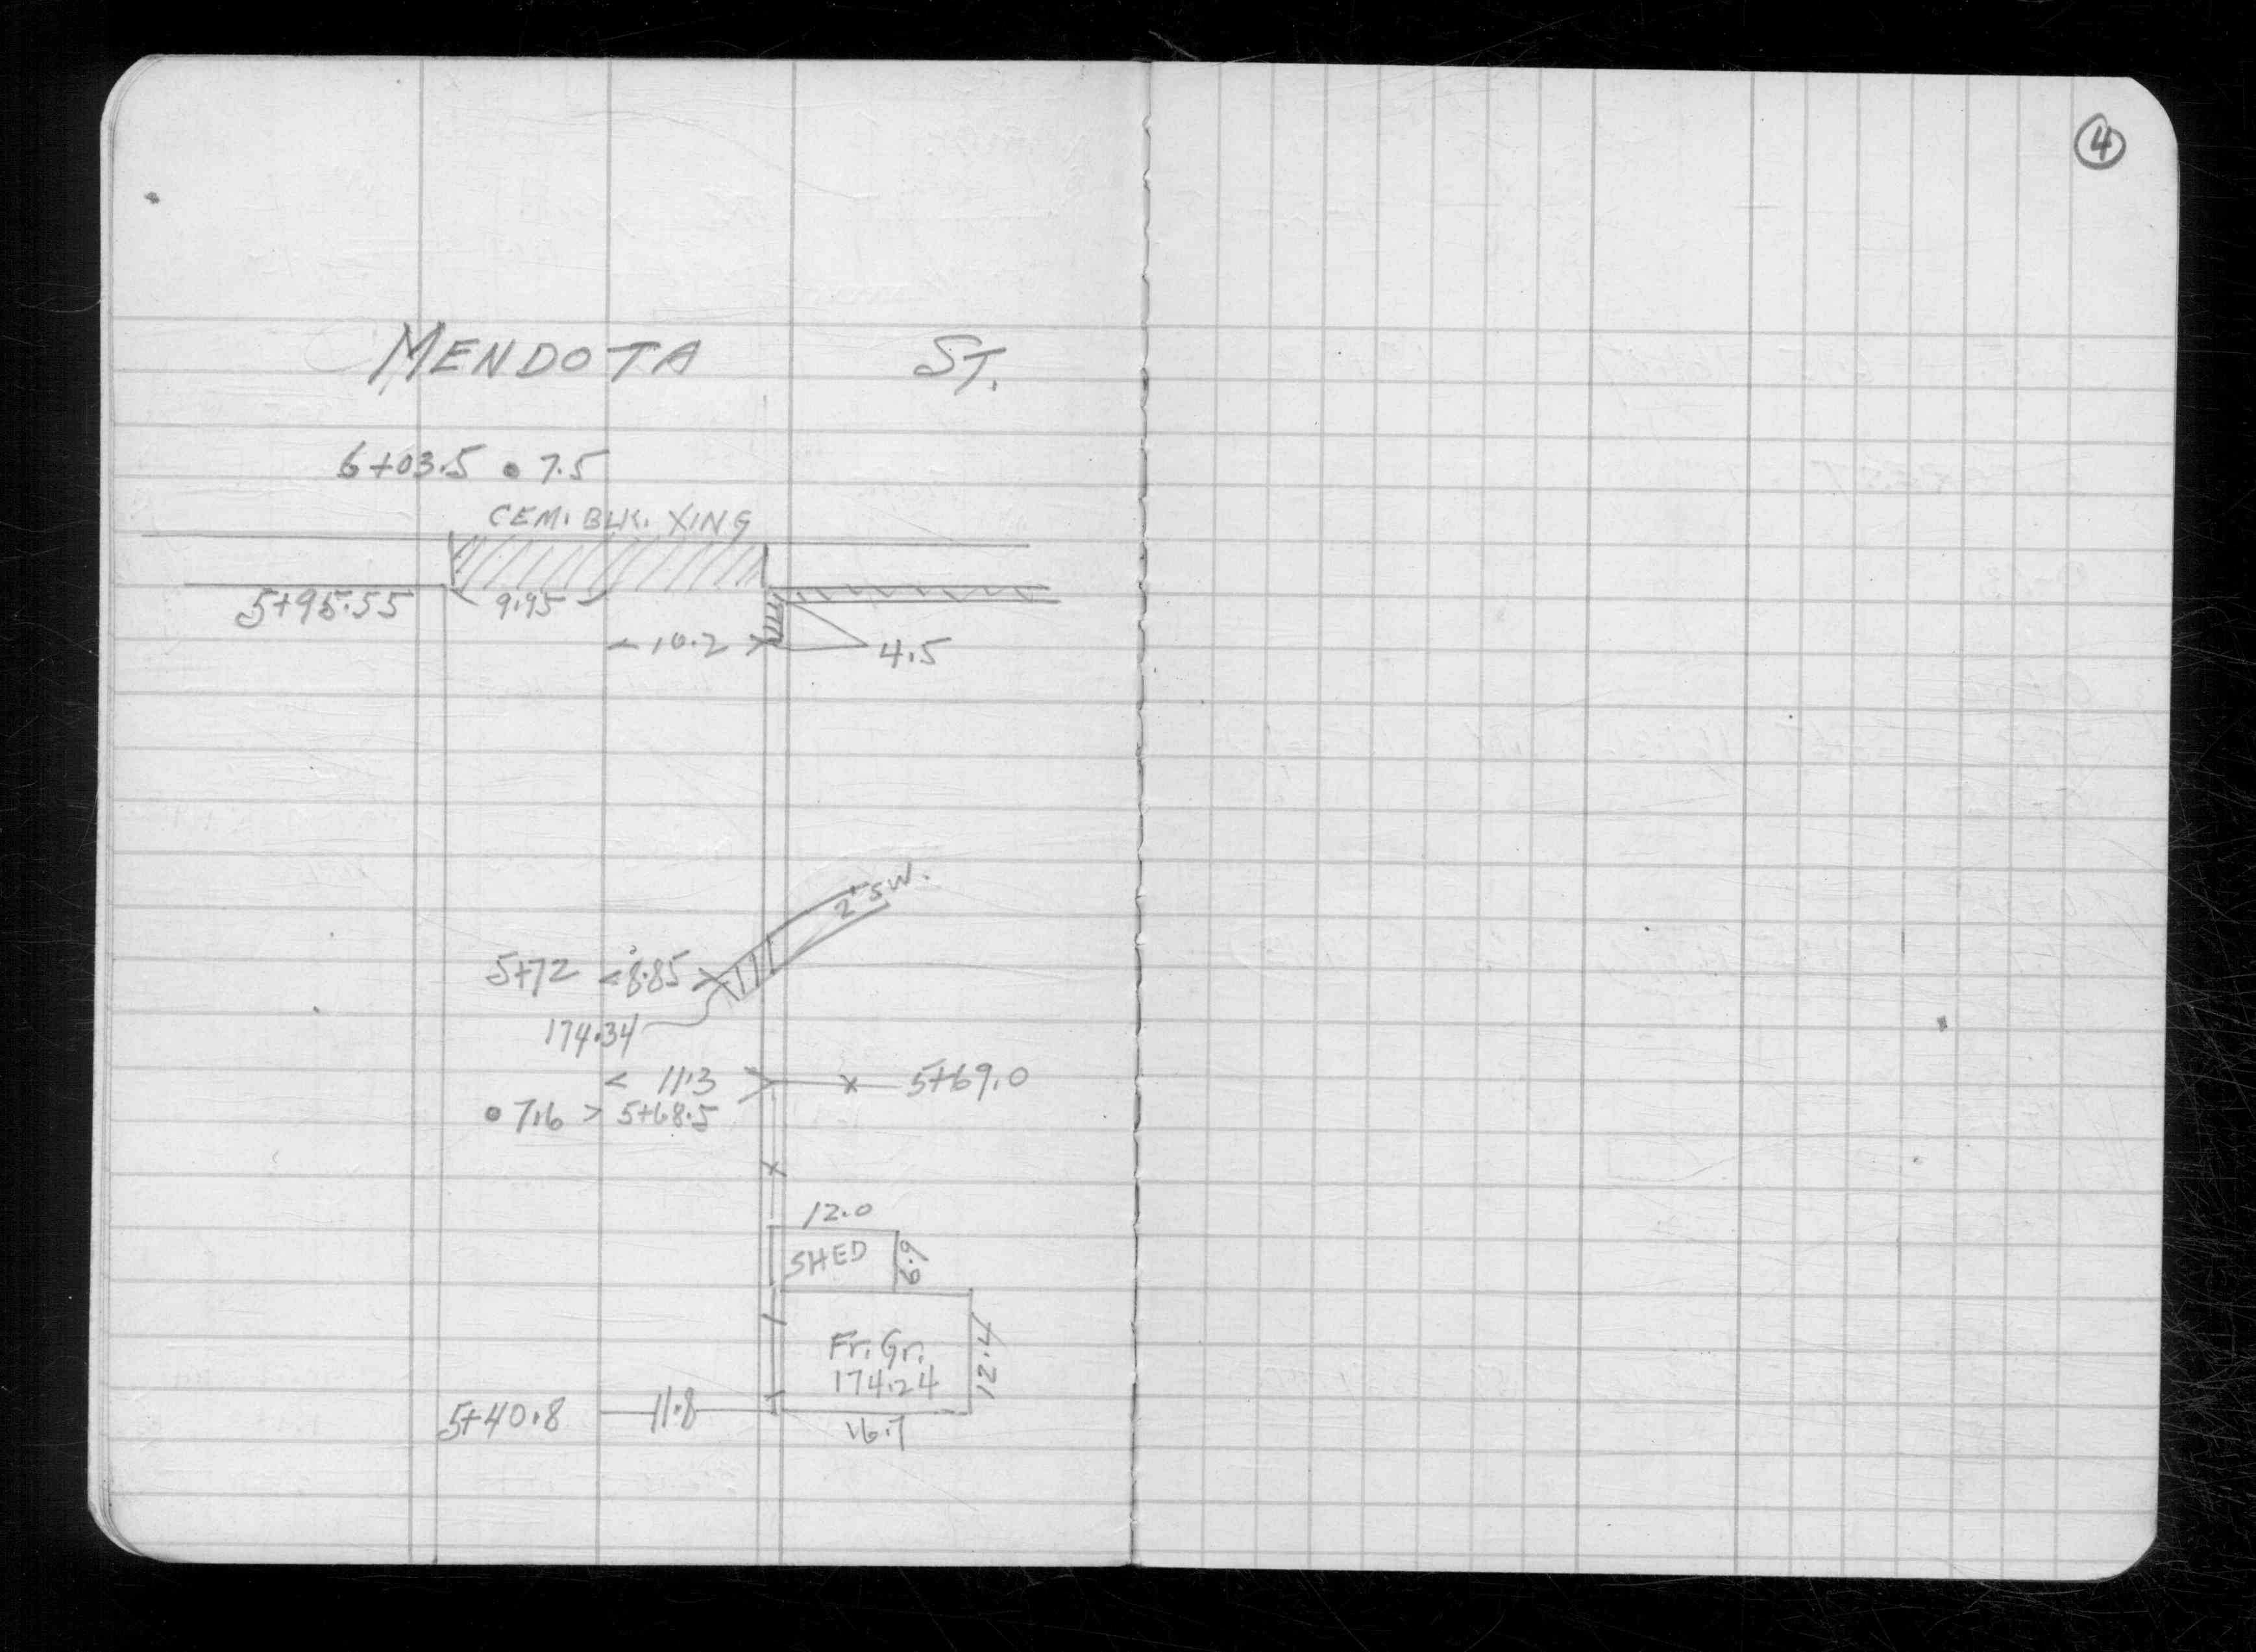 4
MENDOTA ST.
6+03.5 • 7.5
CEM. BLK. XING
5+95.55 9.95
10.2 4.5
2' SW.
5+72 <8.85>
174.34
< 11.3 > x 5+69.0
• 7.6 > 5+68.5
12.0
SHED 6.9
Fr. Gr.
174.24 12.4
5+40.8 11.8
16.7